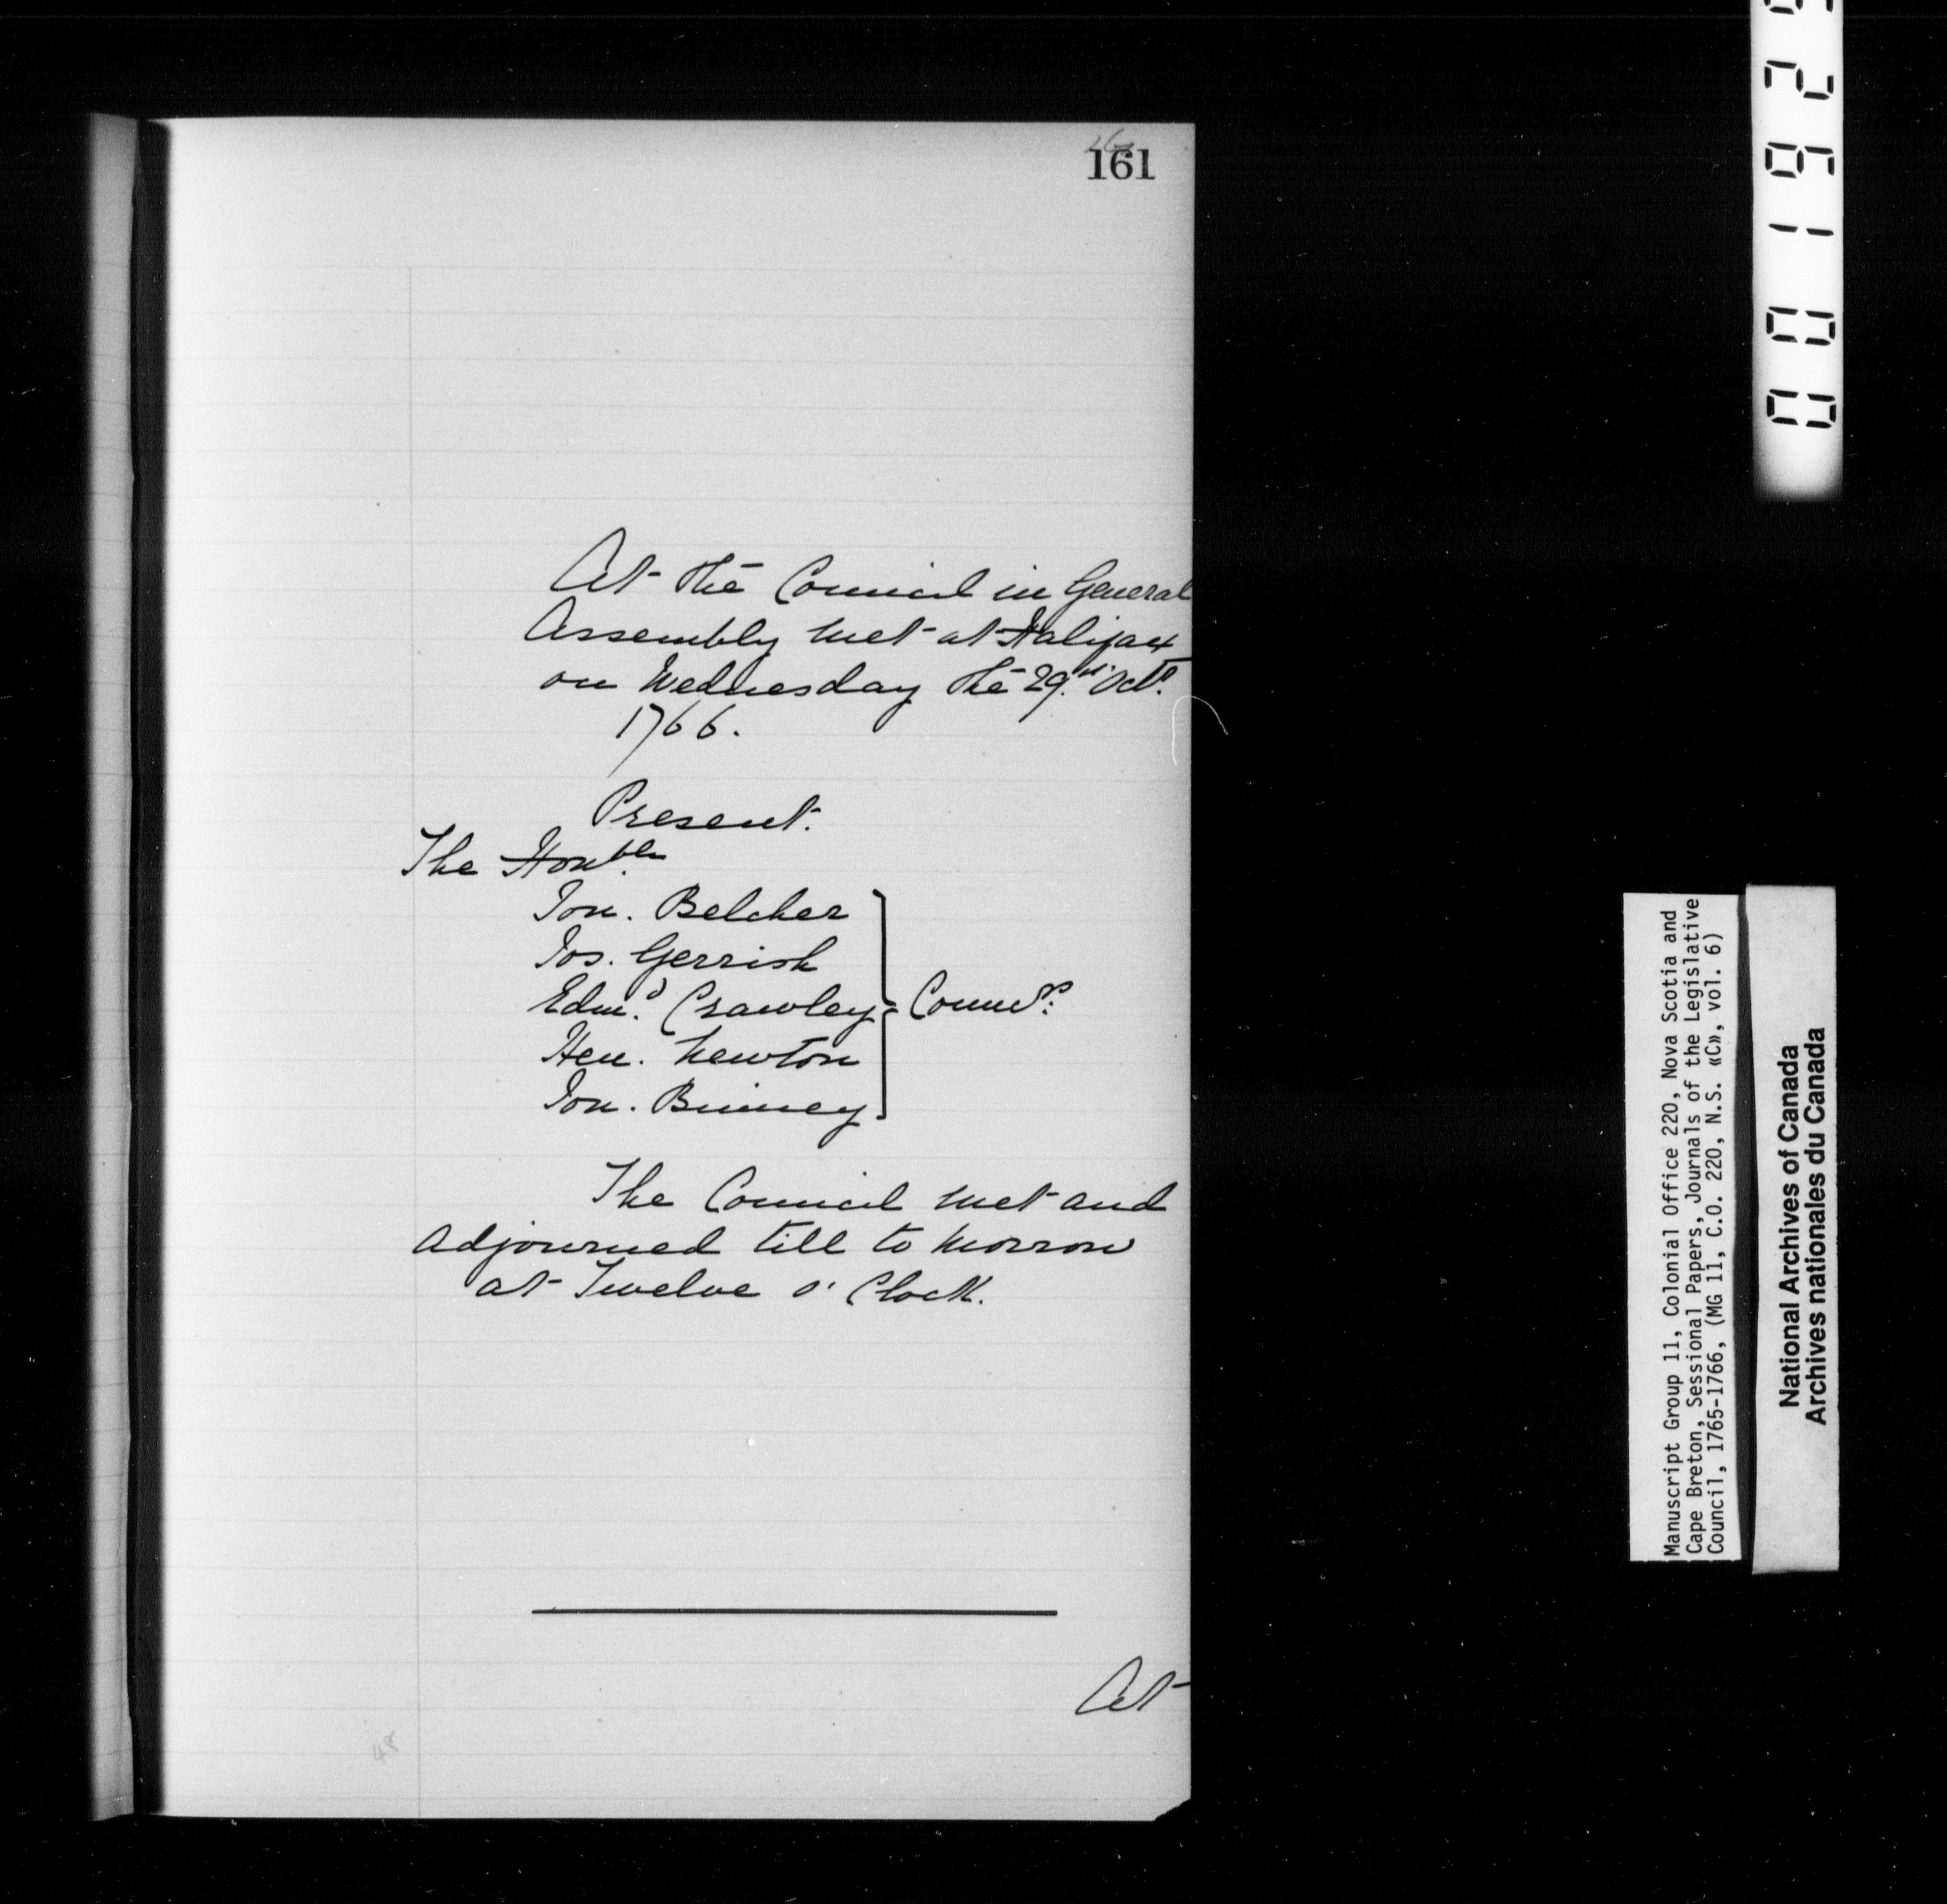 161
At the Council in General
Assembly met at Halifax
on Wednesday the 29th Octr.
1766.
Present.
The Honble.
Jon. Belcher
Jos. Gerrish
Edmd. Crawley
Hen. Newton
Jon. Binney
Councrs.
The Council met and
adjourned till to Morrow
at Twelve o' Clock.
At
48
Manuscript Group 11, Colonial Office 220, Nova Scotia and
Cape Breton, Sessional Papers, Journals of the Legislative
Council, 1765-1766, (MG 11, C.O. 220, N.S. «C», vol. 6)
National Archives of Canada
Archives nationales du Canada